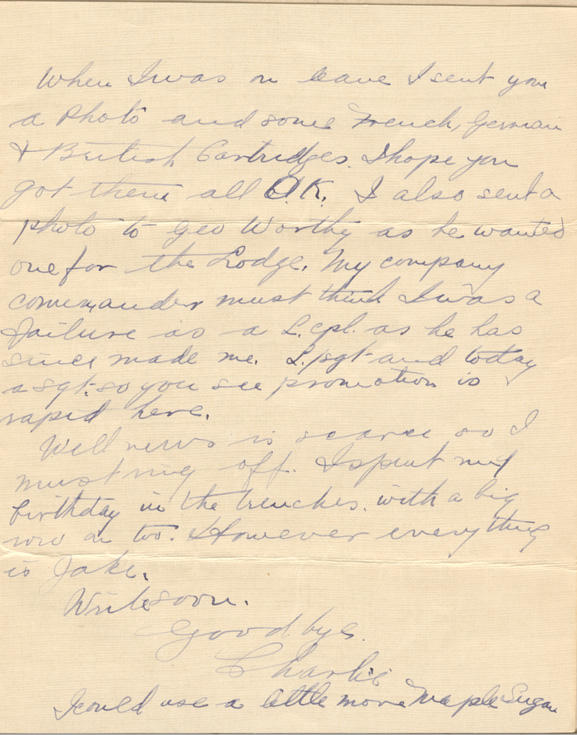 When I was on leave I sent you
a Photo and some French, German
& British Cartridges. I hope you
got them all O.K. I also sent a
photo to Geo Worthy as he wanted
one for the Lodge. My company
commander must think I was a
failure as a L. cpl. as he has
since made me L. sgt and today
a sgt. so you see promotion is
rapid here.
Well news is scarce so I
must ring off. I spent my
birthday in the trenches. with a big
row on too. However everything
is Jake.
Write soon.
Goodbye.
Charlie
I could use a little more Maple Sugar